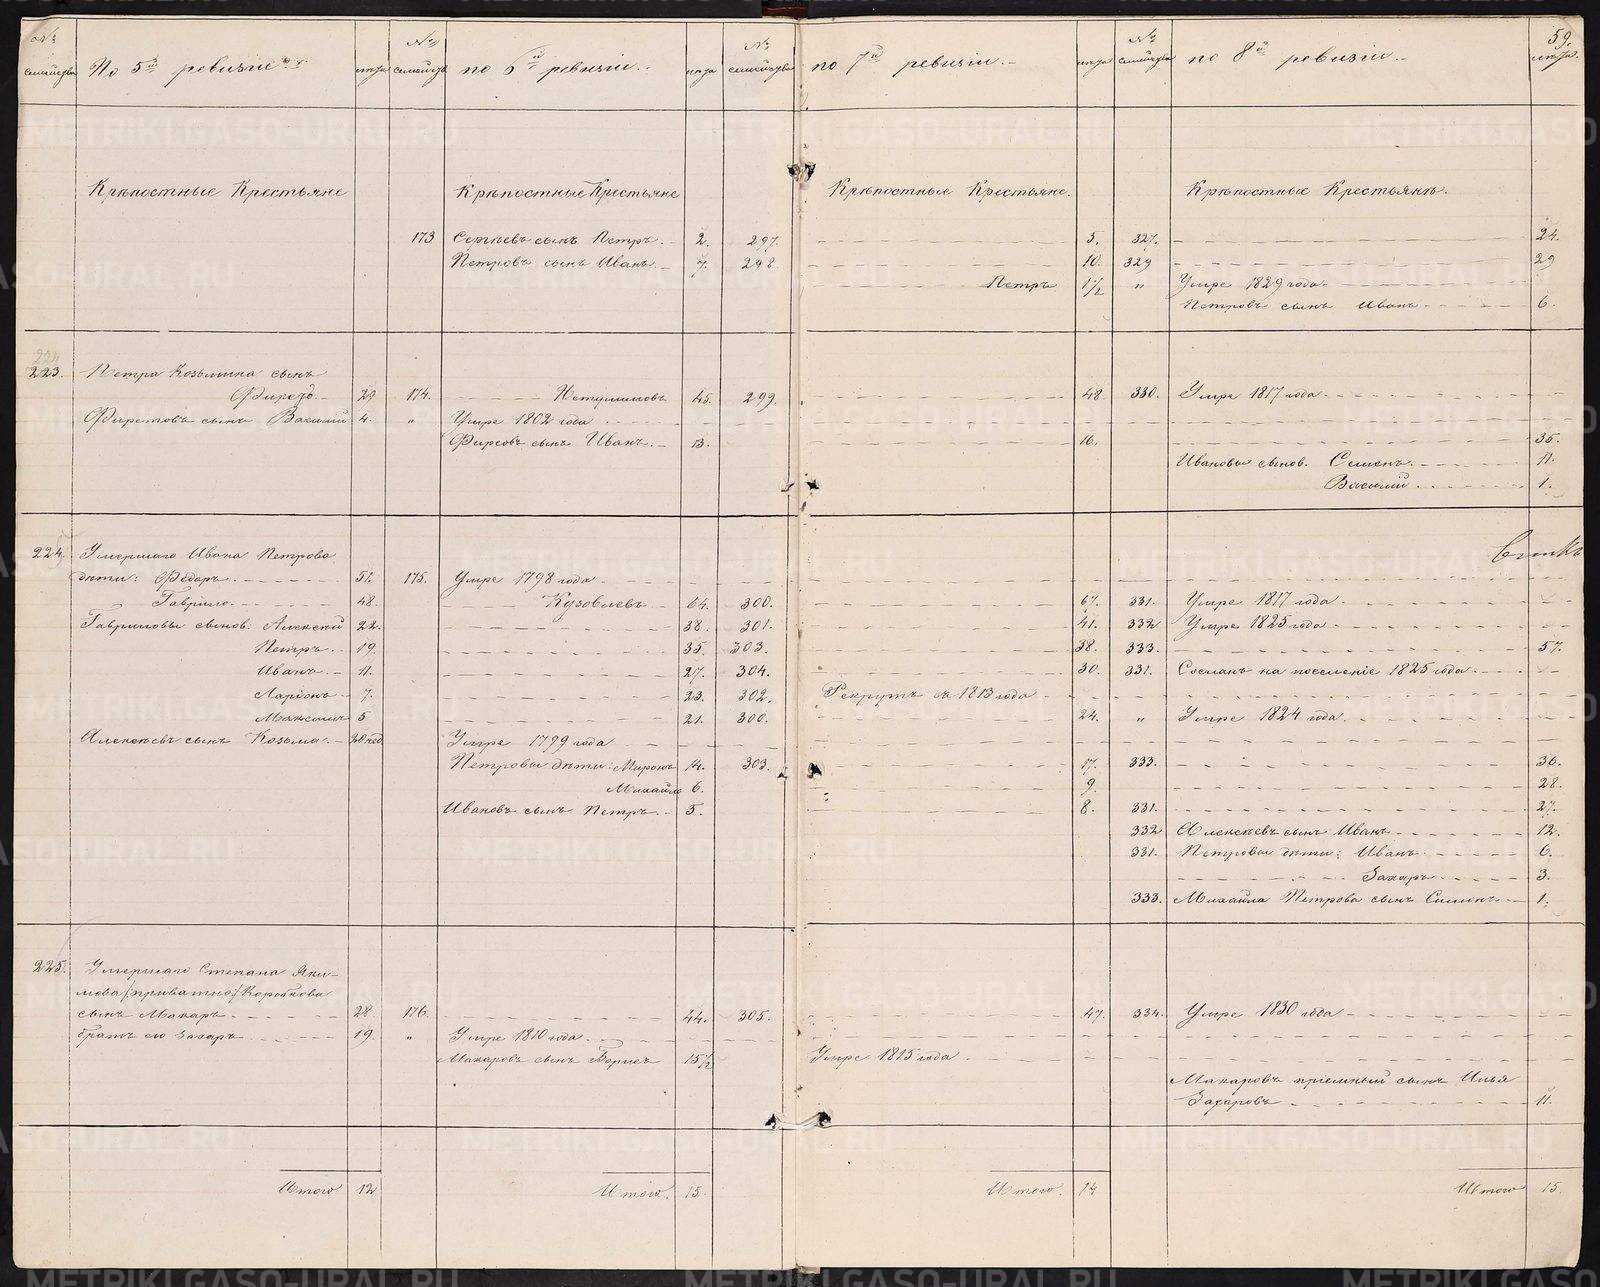 59.
№ семействъ По 5й ревизіи лѣта № семействъ по 6й ревизіи лѣта № семейства по 7й ревизіи лѣта № семейства по 8й ревизіи лѣта.
Крѣпостные Крестьяне Крѣпостные Крестьяне Крѣпостные Крестьяне. Крѣпостные Крестьянъ.
173 Сергѣевъ сынъ Петръ. 2. 297. 5. 327. 24.
Петровъ сынъ Иванъ. 7. 298. 10. 329 29
Петръ 1½ " Умре 1829 года.
Петровъ сынъ Иванъ 6.
224
223. Петра Козьмина сынъ
Фирсъ 29 174. Нетушимовъ 45. 299. 48. 330. Умре 1817 года.
Фирсовъ сынъ Василій 4. " Умре 1802 года
Фирсовъ сынъ Иванъ. 13. 16. 35.
Ивановы сынов. Семенъ. 11.
Василій. 1.
224. Умершаго Ивана Петрова
дѣти: Ѳедоръ. 51. 175. Умре 1798 года
Гаврило. 48. Кузовлевъ 64. 300. 67. 331. Умре 1817 года.
Гавриловы сынов: Алексѣй 22. 38. 301. 41. 332 Умре 1825 года.
Петръ. 19. 35. 303. 38. 333. 57.
Иванъ. 11. 27. 304. 30. 331. Сосланъ на поселеніе 1825 года.
Ларіонъ 7. 23. 302. Рекрутъ съ 1813 года
Максимъ 5 21. 300. 24. " Умре 1824 года.
Алексѣевъ сынъ Козьма. 30 нед. Умре 1799 года
Петровы дѣти: Миронъ 14. 303. 17. 333. 36.
Михайло 6. 9. 28.
Ивановъ сынъ Петръ. 5. 8. 331. 27.
332 Алексѣевъ сынъ Иванъ 12.
331. Петровы дѣти: Иванъ 6.
Захаръ. 3.
333. Михайла Петрова сынъ Симонъ 1.
225. Умершаго Степана Яки-
мова /:приватно:/ Коробкова
сынъ Макаръ 28 176. 44. 305. 47. 334. Умре 1830 года
братъ его Захаръ 19. " Умре 1810 года.
Макаровъ сынъ Борисъ 15½ Умре 1815 года
Макаровъ пріемный сынъ Илья
Захаровъ 11.
Итого 12 Итого. 15. Итого. 14 Итого 15.
METRIKI.GASO-URAL.RU